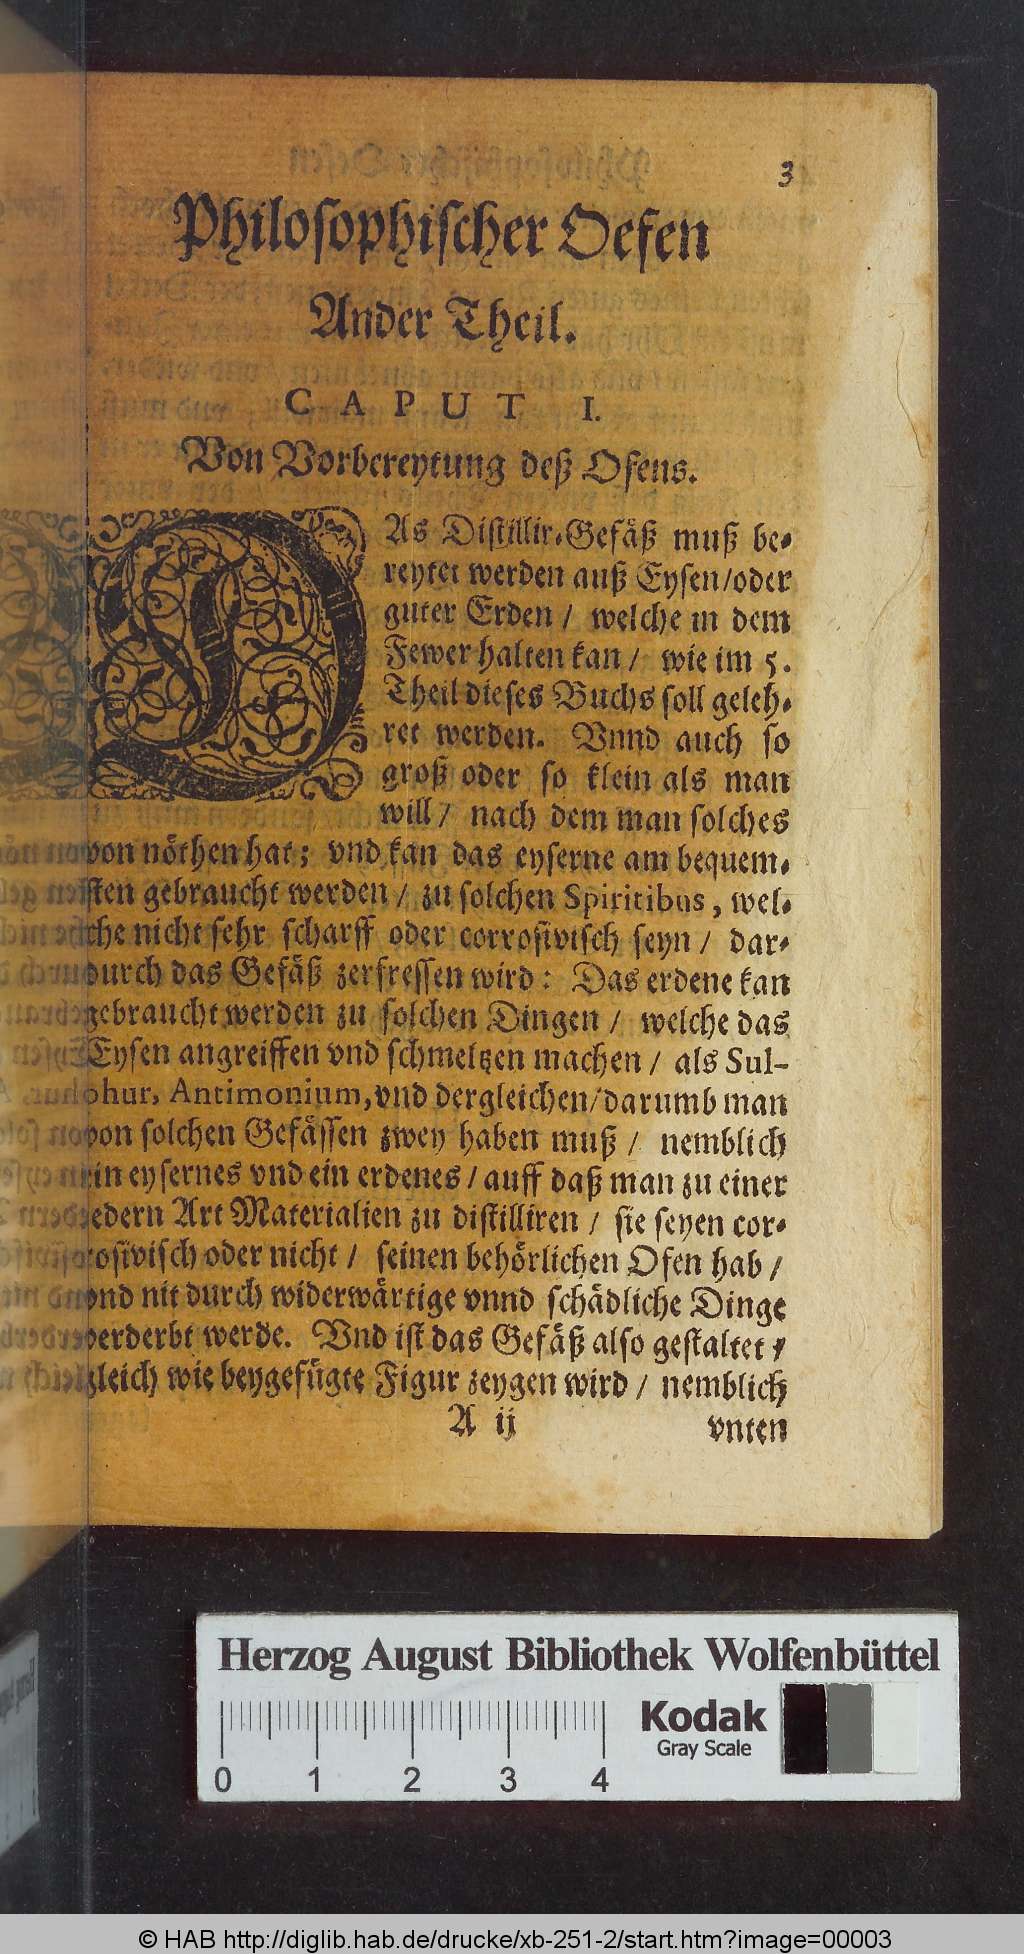 3
Philosophischer Oefen
Ander Theil.
CAPUT I.
Von Vorbereytung deß Ofens.
DAs Distillir-Gefäß muß be-
reytet werden auß Eysen/oder
guter Erden / welche in dem
Fewer halten kan / wie im 5.
Theil dieses Buchs soll geleh-
ret werden. Vnnd auch so
groß oder so klein als man
will / nach dem man solches
von nöthen hat; vnd kan das eyserne am bequem-
sten gebraucht werden / zu solchen Spiritibus, wel-
che nicht sehr scharff oder corrosivisch seyn / dar-
durch das Gefäß zerfressen wird: Das erdene kan
gebraucht werden zu solchen Dingen / welche das
Eysen angreiffen vnd schmeltzen machen / als Sul-
phur, Antimonium, vnd dergleichen/darumb man
von solchen Gefässen zwey haben muß / nemblich
ein eysernes vnd ein erdenes / auff daß man zu einer
jedern Art Materialien zu distilliren / sie seyen cor-
rosivisch oder nicht / seinen behörlichen Ofen hab /
vnd nit durch widerwärtige vnnd schädliche Dinge
verderbt werde. Vnd ist das Gefäß also gestaltet /
gleich wie beygefügte Figur zeygen wird / nemblich
A ij vnten
Herzog August Bibliothek Wolfenbüttel
Kodak
Gray Scale
0 1 2 3 4
© HAB http://diglib.hab.de/drucke/xb-251-2/start.htm?image=00003